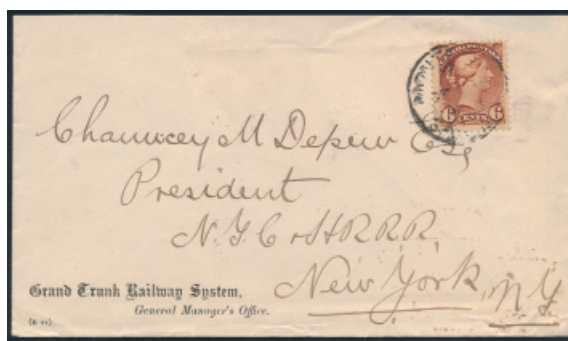 6 CENTS 6
Chauncey M Depew Esq
President
N.Y.C & H.R.R.R.
New York, NY
Grand Trunk Railway System,
General Manager's Office.